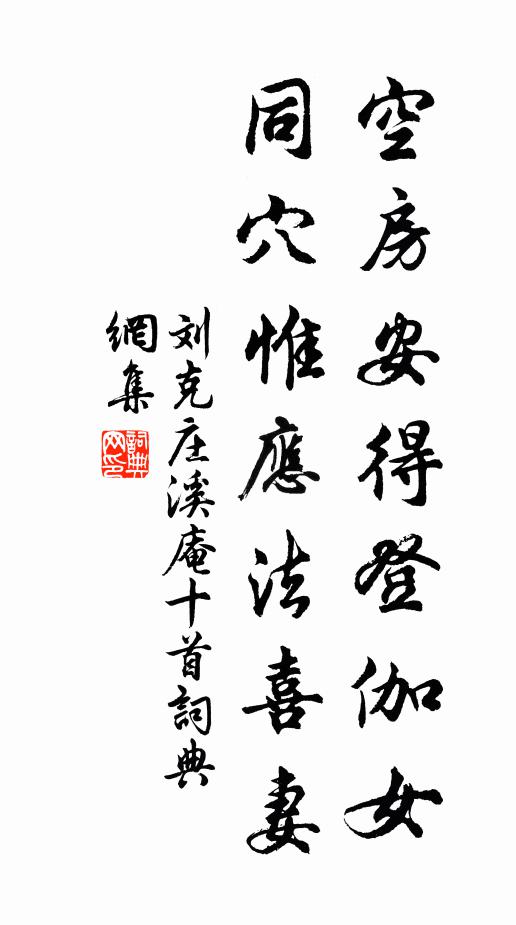 空房安得登伽女
同穴惟應法喜妻
刘克庄溪庵十首詞典
網集
詞典网印